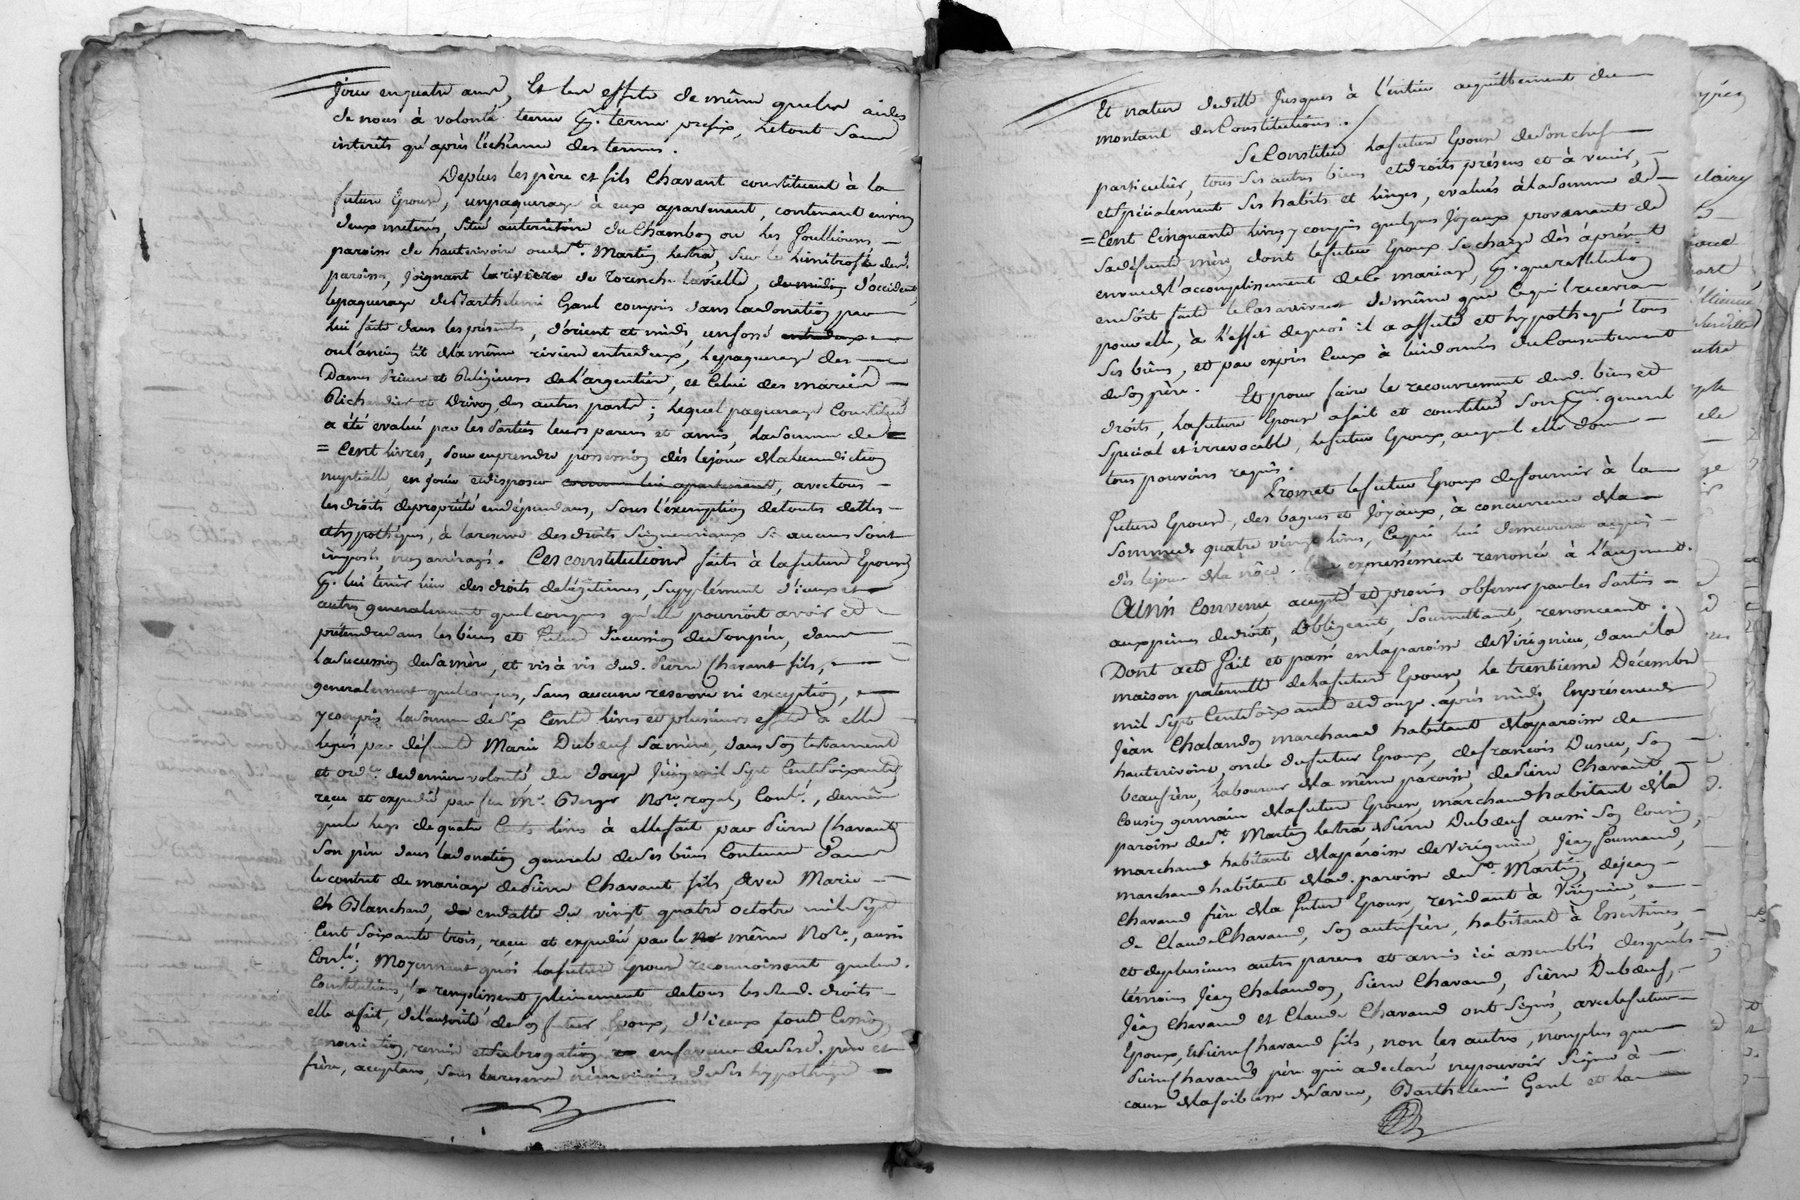 jour en quatre ans, Et les effets de même que les aides
de nous à volonté terme pr. terme prefix, Letout sans
interêts qu'après l'échéance des termes.
Deplus les père et fils Chavant constituent à la
future Epouse, un paquerage à eux apartenant, contenant environ
deux meterés, situé au territoire du Chambon ou les
paroisse de hauterivoire ou de St. Martin Lestra, sur le Limitrofe desd.
paroisses, joignant la riviere de Toranche la vielle, de midy d'occident,
le paquerage de Barthelemi Garel compris dans la donation par
lui faite dans les présentes, d'orient et midi, un fossé entredeux
ou l'ancien lit de la même riviere entredeux, le paquerage des
Dames Prieure et Religieuses de L'argentiere, et Celui des mariés
et Drivon, des autres parts; Lequel paquerage Constitué
a été evalué par les Parties leurs parens et amis, La somme de =
= Cent livres, pour en prendre possession dès le jour de la benediction
nuptialle, en jouir et disposer comme lui apartenant, avec tous
les droits de propriété en dépendans, sous l'exemption de toutes dettes
et hypothèques, à la reserve des droits Seigneuriaux Si aucuns sont
imposés, non arréragés. Ces constitutions faites à la future Epouse
pr. lui tenir lieu des droits de légitimes, supplément d'iceux et
autres generalement quelconques qu'elle pourroit avoir et
prétendre dans les biens et future succession de son père, dans
la succession de sa mère, et vis à vis dud. Pierre Chavant fils,
generalement quelconques, sans aucune reserve ni exception,
y compris la somme de six Cents livres et plusieurs effets à elle
legués par défunte Marie Duboeuf sa mère, dans son testament
et ordce. de derniere volonté du douze juin mil sept Cent soixante
recu et expedié par feu Me. Berger Nore. royal, Conlé., de même
que le legs de quatre Cents livres à elle fait par Pierre Chavant
son père dans la donation generale de ses biens Contenue dans
le contrat de mariage de Pierre Chavant fils, avec Marie
Ch Blanchard, de en datte du vingt quatre octobre mil sept
Cent soixante trois, recu et expedié par le No même Nore., aussi
Conlé; moyennant quoi la future Epouse reconnoissent que les
Constitutions, la remplissent pleinement de tous les susd. droits
elle a fait, de l'autorité de son futur Epoux, d'iceux toute Cession,
renonciation, remise et subrogation, en faveur de sesd. père et
frère, aceptans, sous la reserve néanmoins de ses hypothèques
Et nature de dette jusques à l'entier aquittement du
montant des Constitutions.
Se Constitue La future Epouse de son chef
particulier, tous ses autres biens et droits présens et à venir,
et spécialement ses habits et linges, evalués à la somme de
= Cent Cinquante livres, y compris quelques joyaux provenant de
sa défunte mère dont le futur Epoux se charge dès à présent
en vue de l'accomplissement de ce mariage, pr. que restitution
en soit faite le Cas arrivant de même que Ce qu'il recevra
pour elle, à l'effet dequoi il a affecté et hypothequé tous
ses biens, et par exprès Ceux à lui donnés du Consentement
de son père. Et pour faire le recouvrement desd. biens et
droits, La future Epouse a fait et constitué son Procur. general
Special et irrevocable, le futur Epoux, auquel elle donne
tous pouvoirs requis.
Promet le futur Epoux de fournir à la
future Epouse, des bagues et joyaux, à concurrence de la
somme de quatre vingt livres, Ce qui lui demeurera acquis
dès le jour de la nôce. expressément renoncé à l'augment.
Ainsi convenu, acepté et promis observer par les Parties
aux peines de droit, Obligeant, soumettant, renonceant.
Dont acte fait et passé en la paroisse de Virigneux, dans la
maison paternelle de la future Epouse, le trentieme Décembre
mil sept Cent soixante et douze après midi, En présence de
Jean Chalandon marchand habitant de la paroisse de
hauterivoire, oncle du futur Epoux, de françois son
beaufrère, laboureur de la même paroisse, de Pierre Chavant
Cousin germain de la future Epouse, marchand habitant de la
paroisse de St. Martin Lestra, de Pierre Duboeuf aussi son Cousin,
marchand habitant de la paroisse de Virigneux, Jean
marchand habitant de lad. paroisse de St. Martin, de Jean
Chavand frère de la future Epouse, residant à Virigneux,
de Claude Chavand, son autre frère, habitant à Essertines,
et de plusieurs autres parens et amis ici assemblés, desquels
témoins Jean Chalandon, Pierre Chavand, Pierre Duboeuf,
Jean Chavand et Claude Chavand ont signés, avec le futur
Epoux, et Pierre Chavand fils, non les autres, non plus que
Pierre Chavand père qui a declaré ne pouvoir signer à
cause de la foiblesse de sa vue, Barthelemi Garel et la